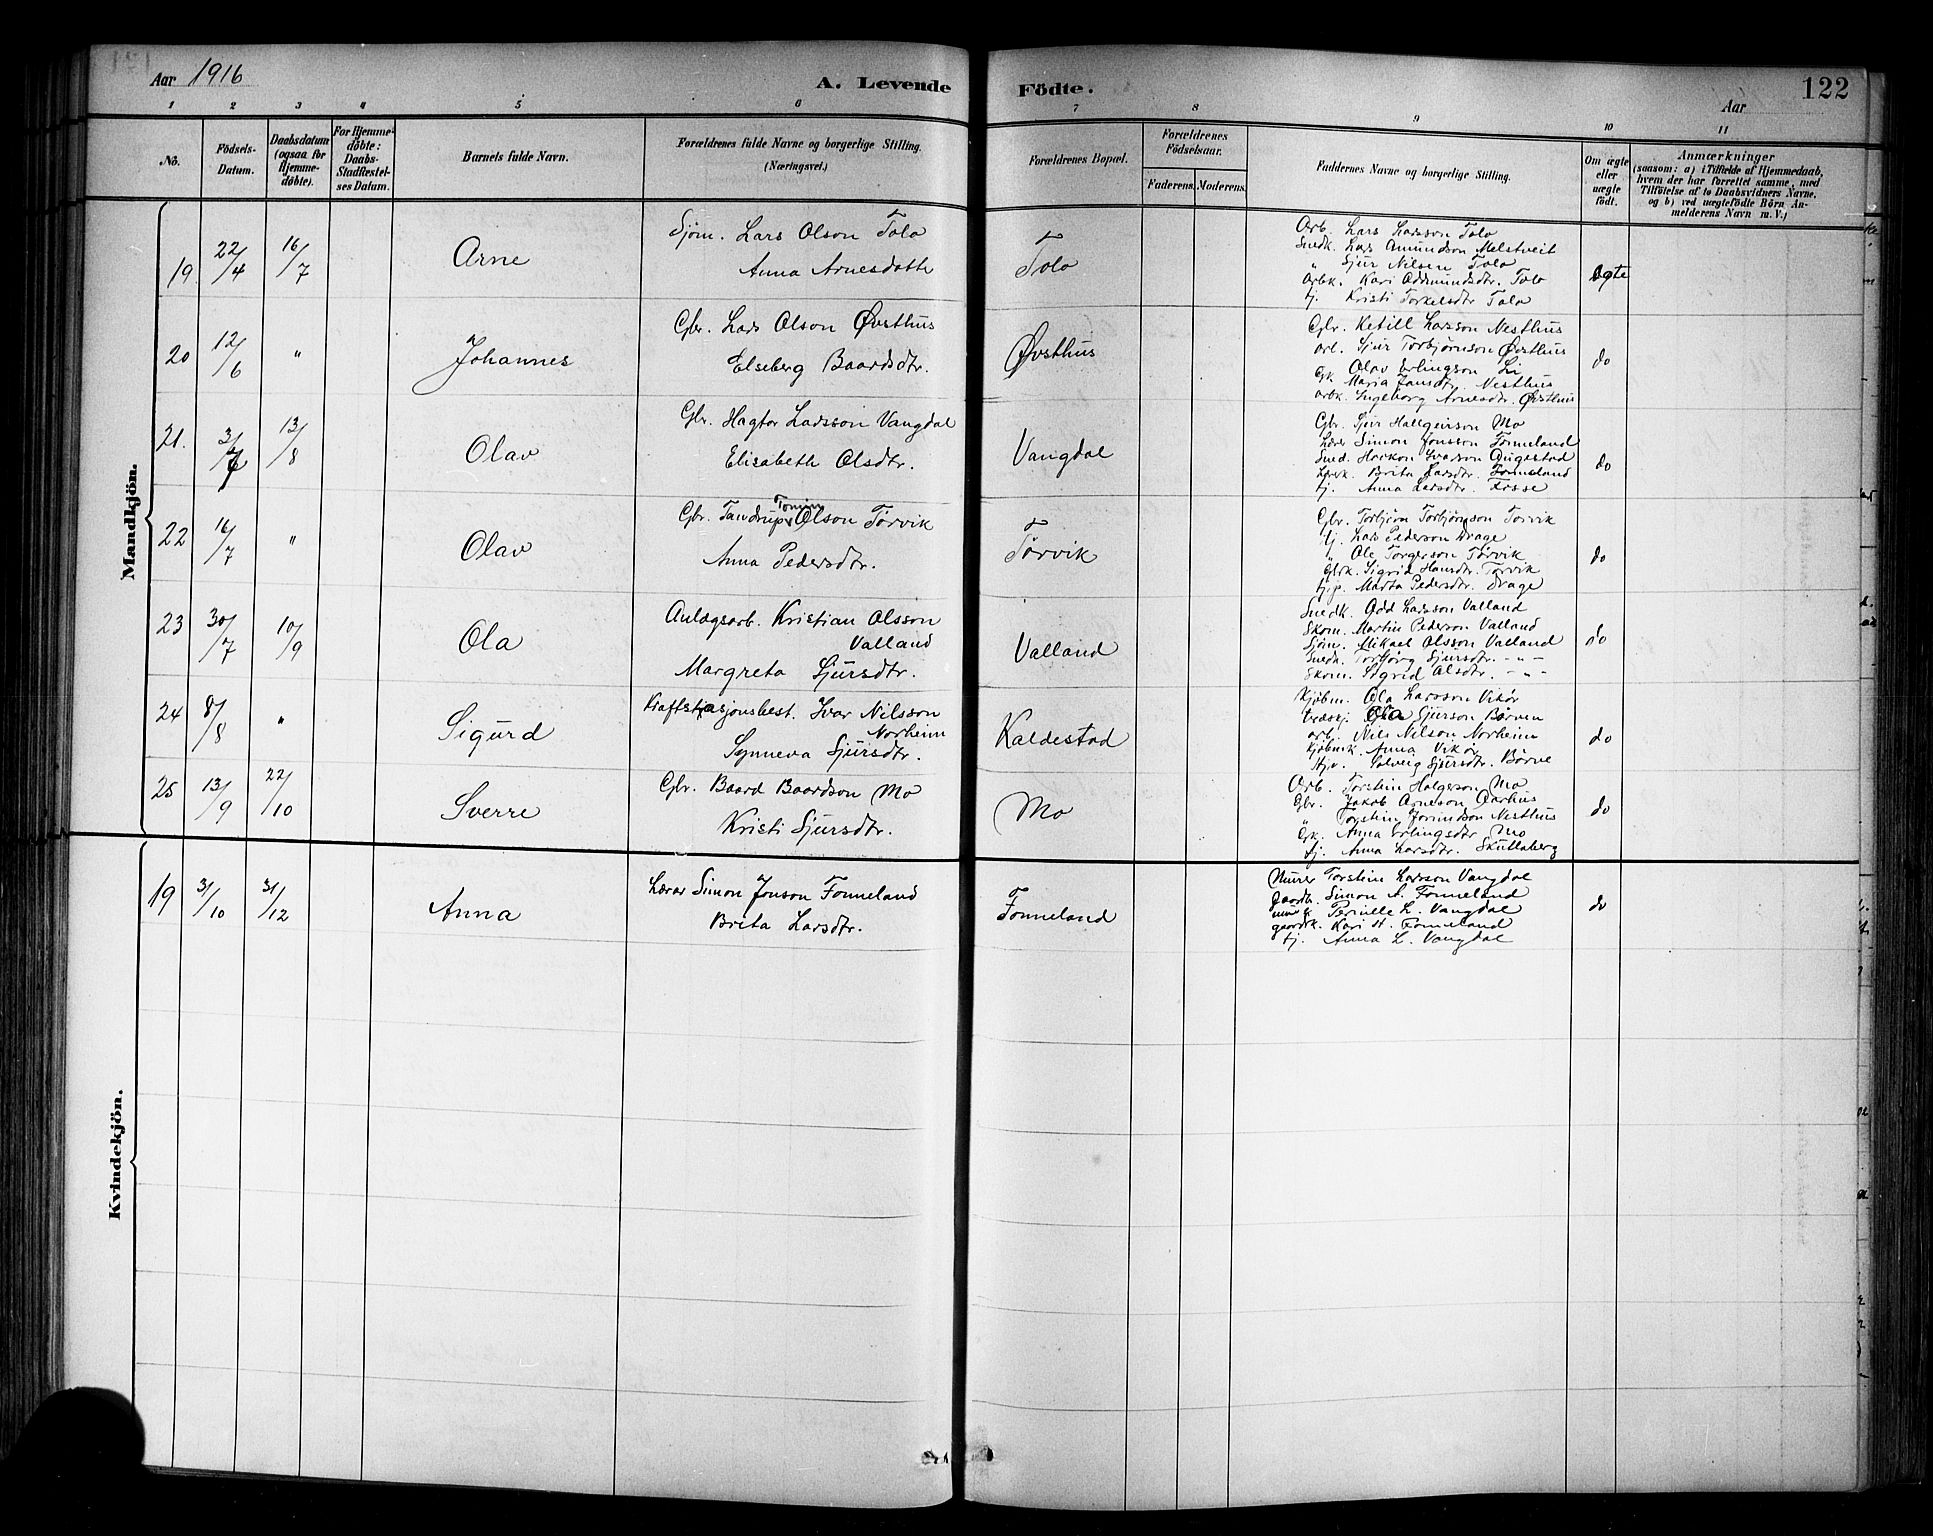 Aar 1916
A. Levende Födte.
Aar
122
1 2 3 4 5 6 7 8 9 10 11
No.
Födsels-Datum.
Daabsdatum (ogsaa for Hjemme-døbte).
For Hjemme-døbte: Daabs-Stadfæstel-ses Datum.
Barnets fulde Navn.
Forældrenes fulde Navne og borgerlige Stilling.
(Næringsvei.)
Forældrenes Bopæl.
Forældrenes Födselsaar.
Faderens. Moderens.
Faddernes Navne og borgerlige Stilling.
Om ægte eller uægte födt.
Anmærkninger
(saasom: a) i Tilfælde af Hjemmedaab,
hvem der har forrettet samme, med
Tilföielse af to Daabsvidners Navne,
og b) ved uægtefödte Börn An-
melderens Navn m. V.)
Mandkjön.
19 22/4 16/7 Arne
Sjöm. Lars Olson Tolo
Anna Arnesdotte
Tolo
Arb. Lars Larsson Tolo
Snedk. Lars Amundson Melstveit
" Sjur Nilsen Tolo
Arbk. Kari Oddmundsdtr. Tolo
tj. Kristi Torkelsdtr Tolo
Ægte
20 12/6 " Johannes
Gbr. Lars Olson Øvsthus
Elseberg Baardsdtr.
Øvsthus
Gbr. Ketill Larsson Nesthus
arb. Sjur Torbjørnson Øvsthus
Olav Erlingson Li
Gk. Maria Jansdtr. Nesthus
arbk. Ingeborg Arnesdtr. Øvsthus
do
21. 3/7 13/8 Olav
Gbr. Hagtor Ladsson Vangdal
Elisabeth Olsdtr.
Vangdal
Gbr. Sjur Hallgeirson Mo
Lærer Simon Jonsson Fonneland
Sned. Haakon Ivarson Augestad
Lærk. Brita Larsdtr. Fonneland
tj. Anna Larsdtr. Fosse
do
22 16/7 " Olav
Gbr. Tandrup Tomin Olson Tørvik
Anna Pedersdtr.
Tørvik
Gbr. Torbjörn Torbjörnson Torvik
tj. Lars Pederson Drage
" Ole Torgerson Tørvik
Gbrk. Sigrid Hansdtr. Torvik
tjp. Marta Pedersdtr. Drage
do
23 30/7 10/9 Ola
Anlægsarb. Kristian Olsson
Valland
Margreta Sjursdtr.
Valland
Snedk. Odd Larsson Valland
Skom. Martin Pederson Valland
Sjöm. Mikael Olsson Valland
Snedk. Torbjørg Sjursdtr. - " -
Skom. Sigrid Olsdtr. - " -
do
24 8/8 " Sigurd
Kraftstasjonsbest. Ivar Nilsson
Norheim
Synneva Sjursdtr.
Kaldestad
Kjøbm. Ola Larsson Vikör
træskj. Ola Sjurson Børven
arb. Nils Nilson Norheim
Kjøbmk. Anna Vikör
Hjv. Solveig Sjursdtr. Börve
do
25 13/9 22/10 Sverre
Gbr. Baard Baardson Mo
Kristi Sjursdtr.
Mo
Arb. Torstein Holgerson Mo
Gbr. Jakob Arneson Aarhus
" Torstein Jormudson Nesthus
Gk. Anna Erlingsdtr Mo
tj. Anna Larsdtr. Skutlaberg
do
Kvindekjön.
19 3/10 31/12 Anna
Lærer Simon Jonson Fonneland
Brita Larsdtr.
Fonneland
Murer Torstein Larsson Vangdal
gaardb. Simon A. Fonneland
Pernille L. Vangdal
gaardk. Kari H. Fonneland
tj. Anna L. Vangdal
do